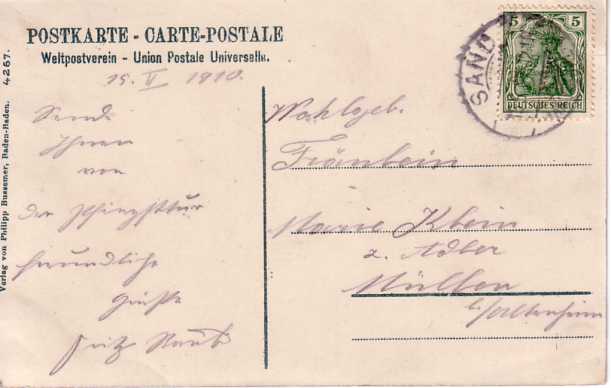 POSTKARTE - CARTE-POSTALE
Weltpostverein - Union Postale Universelle.
15. V 1910.
Sende
Ihnen
von
der Pfingsttour
freundliche
Grüße
Fritz
Wohlgeb.
Fräulein
Marie Klein
z. Adler
Müllen
b/Altenheim
SAND
5 5
DEUTSCHES REICH
Verlag von Philipp Bussemer, Baden-Baden. 4267.